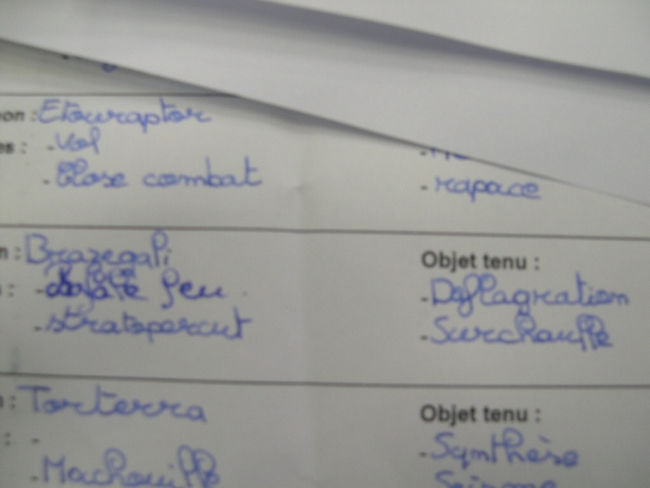 on : Etouraptor
es : - Vol
- Close combat
- rapace
n : Brazegali
Objet tenu :
: - feu - Déflagration
- stratopercut - Surchauffe
: Torterra
Objet tenu :
: - - Synthèse
- Machouille Seisme